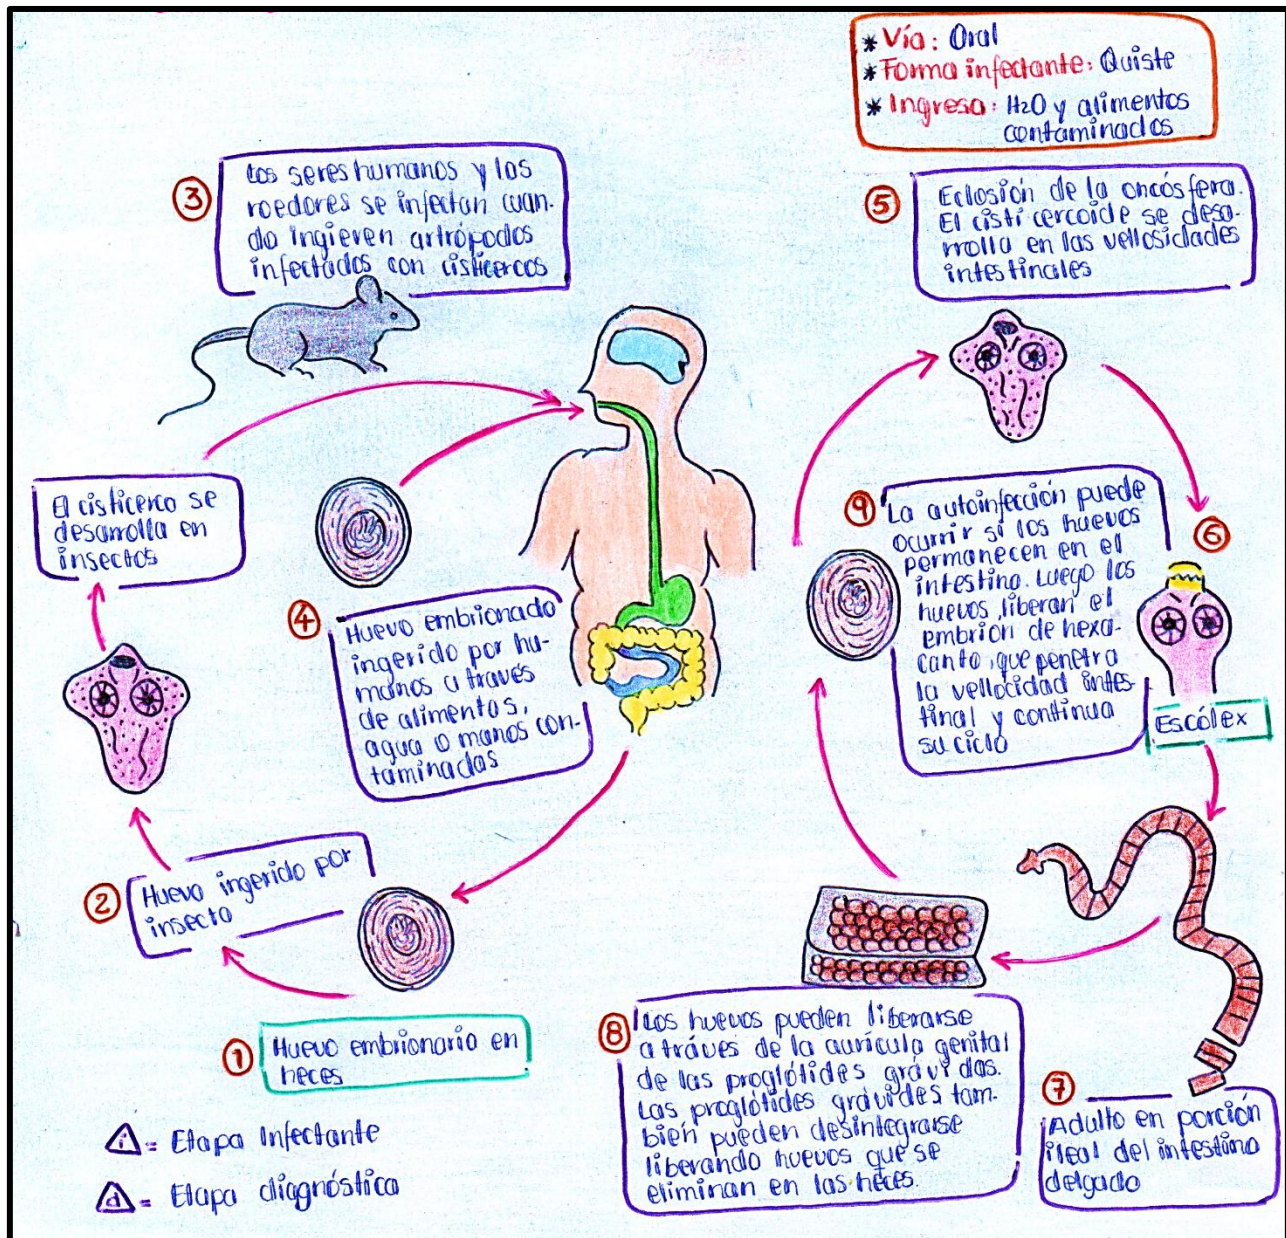 * Vía: Oral
* Forma infectante: Quiste
* Ingreso: H2O y alimentos
contaminados
3
Los seres humanos y los
roedores se infectan cuan-
do ingieren artrópodos
infectados con cisticercos
5
Eclosión de la oncósfera.
El cisti cercoide se desa-
rrolla en las vellosidades
intestinales
El cisticerco se
desarrolla en
insectos
4
Huevo embrionado
ingerido por hu-
manos a través
de alimentos,
agua o manos con-
taminadas
9
La autoinfección puede
ocurrir si los huevos
permanecen en el
intestino. Luego los
huevos liberan el
embrión de hexa-
canto, que penetra
la vellocidad intes-
tinal y continua
su ciclo
6
Escólex
2
Huevo ingerido por
insecto
1
Huevo embrionario en
heces
8
Los huevos pueden liberarse
a tráves de la aurícula genital
de las proglótides grávidas.
Las proglótides grávides tam-
bien pueden desintegrarse
liberando huevos que se
eliminan en las heces.
7
Adulto en porción
ileal del intestino
delgado
i = Etapa Infectante
d = Etapa diagnóstica